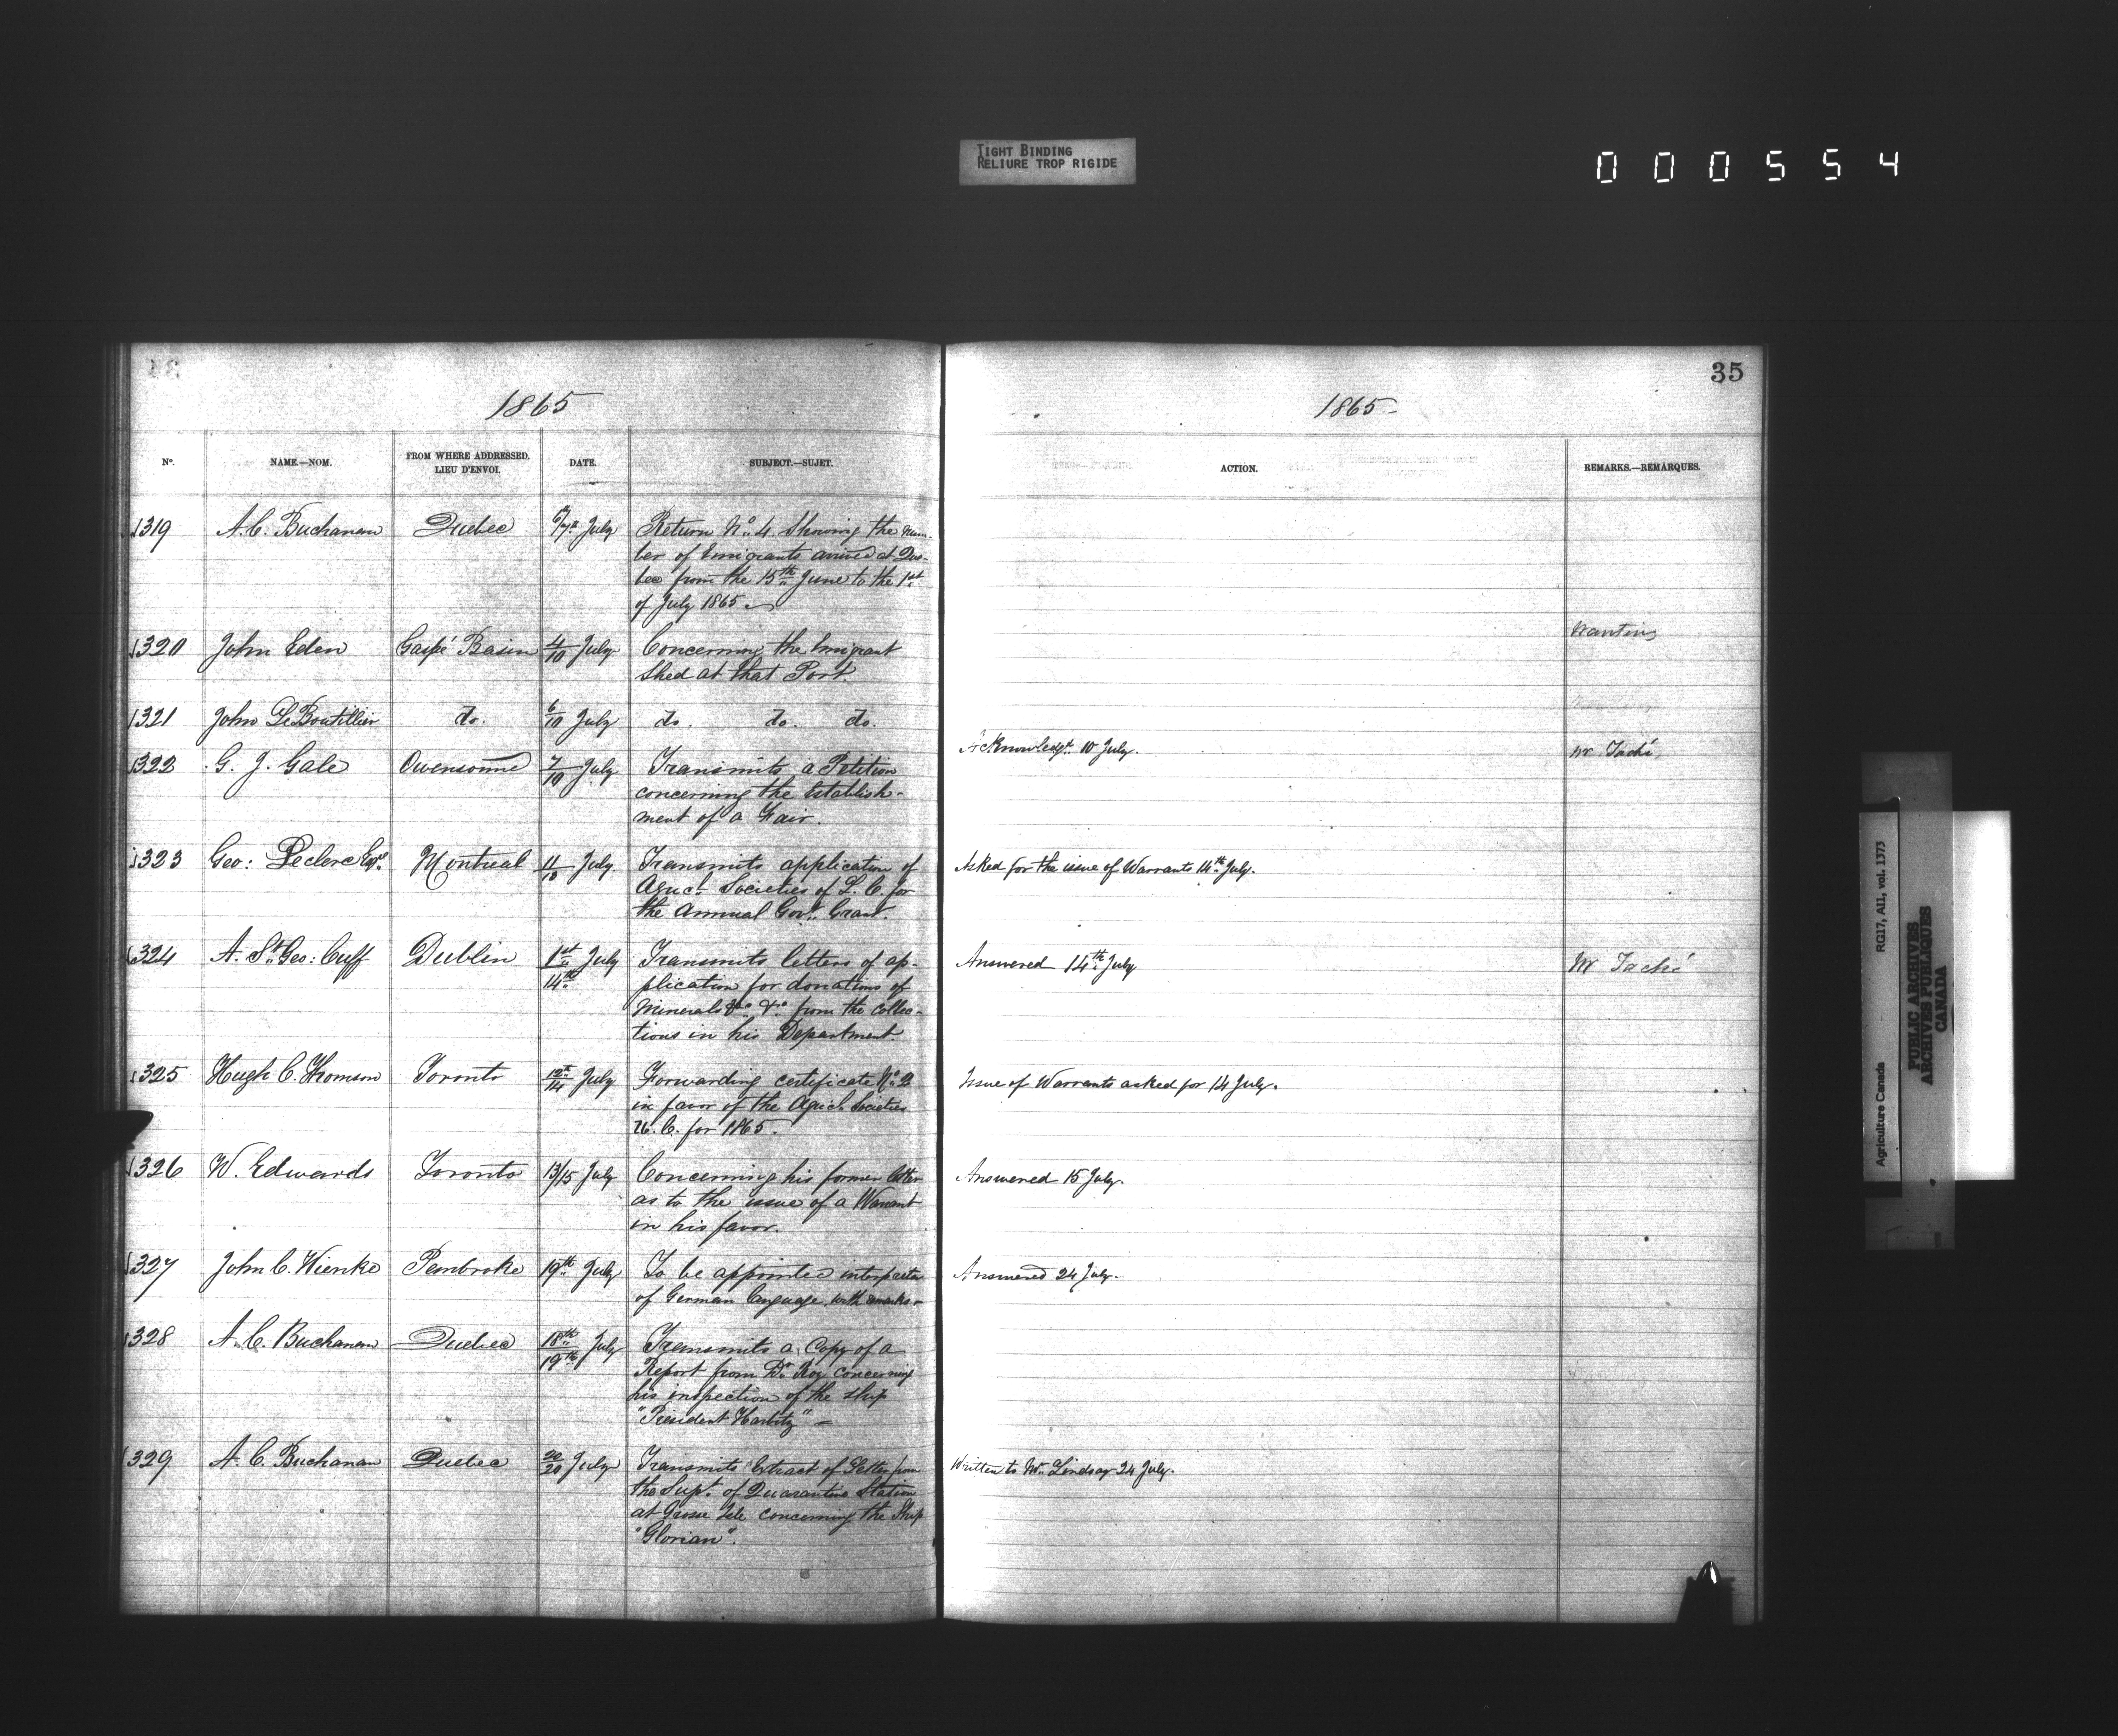 TIGHT BINDING
RELIURE TROP RIGIDE
000554
35
1865
1865
No.
NAME.—NOM.
FROM WHERE ADDRESSED.
LIEU D'ENVOI.
DATE.
SUBJECT.—SUJET.
ACTION.
REMARKS.—REMARQUES.
1319 A. C. Buchanan Quebec 6/7th July Return No. 4 Showing the num-
ber of Emigrants arrived at Que-
bec from the 15th June to the 1st
of July 1865.
Wanting
1320 John Eden Gaspé Basin 4/10 July Concerning the Emigrant
Shed at that Port.
1321 John LeBoutillier do. 6/10 July do. do. do.
1322 G. J. Gale Owensound 7/10 July Transmits a Petition Acknowledgt. 10 July. Mr Taché,
concerning the Establish-
ment of a Fair.
1323 Geo: Leclerc Esqr. Montreal July Transmits application of Asked for the issue of Warrants 14th July.
Agricl. Societies of L. C. for
the Annual Govt. Grant.
1324 A. St. Geo: Cuff Dublin 1st/14th July Transmits letters of ap- Answered 14th July Mr Taché
plication for donations of
Minerals &c. &c. from the Collec-
tions in his Department.
1325 Hugh C. Thomson Toronto 12th/14 July Forwarding certificate No. 2 Issue of Warrants asked for 14 July.
in favor of the Agricl. Societies
U. C. for 1865.
1326 W. Edwards Toronto 13/15 July Concerning his former letter Answered 15 July.
as to the issue of a Warrant
in his favor.
1327 John C. Wienke Pembroke 19th July To be appointed interpreter Answered 24 July.
of German language, with
1328 A. C. Buchanan Quebec 18th/19th July Transmits a Copy of a
Report from Dr. Roy concerning
his inspection of the ship
"President Harbitz"
1329 A. C. Buchanan Quebec 20/20 July Transmits Extract of Letter from Written to Mr. Lindsay 24 July.
the Supt. of Quarantine Station
at Grosse Isle concerning the Ship
"Glorian".
Agriculture Canada RG17, AII, vol. 1373
PUBLIC ARCHIVES
ARCHIVES PUBLIQUES
CANADA